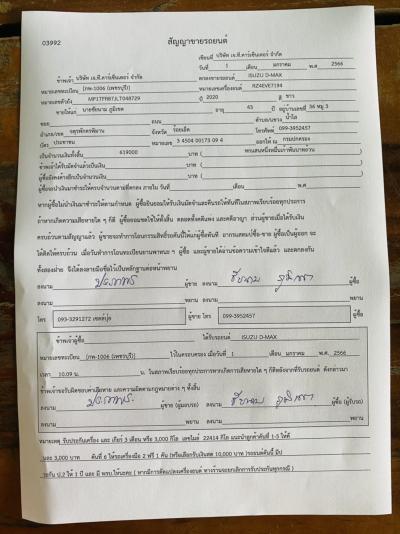 03992
สัญญาขายรถยนต์
เขียนที่ บริษัท เจ.ที.คาร์เซ็นเตอร์ จำกัด
วันที่ 1 เดือน มกราคม พ.ศ 2566
ข้าพเจ้า บริษัท เจ.ที.คาร์เซ็นเตอร์ จำกัด ตกลงขายรถยนต์ ISUZU D-MAX
หมายเลขทะเบียน (กพ-1006 (เพชรบุรี)) หมายเลขเครื่องยนต์ RZ4EVE7194
หมายเลขตัวถัง MP1TFR87JLT048729 ปี 2020 สี ขาว
ขายให้แก่ นายชัยนาม ภูมิเขต อายุ 43 ปี อยู่บ้านเลขที่ 36 หมู่ 3
ซอย ถนน ตำบล/แขวง น้ำใส
อำเภอ/เขต จตุรพักตรพิมาน จังหวัด ร้อยเอ็ด โทรศัพท์ 099-3952457
บัตร ประชาชน หมายเลข 3 4504 00173 09 4 ออกให้ ณ กรมปกครอง
เป็นจำนวนเงินทั้งสิ้น 619000 บาท ( หกแสนหนึ่งหมื่นเก้าพันบาทถ้วน )
ข้าพเจ้าได้รับมัดจำแล้วเป็นเงิน บาท ( )
ผู้ซื้อยังคงค้างอีกเป็นจำนวนเงิน บาท ( )
ผู้ซื้อจะนำเงินมาชำระให้ครบจำนวนตามที่ตกลง ภายใน วันที่ เดือน พ.ศ
หากผู้ซื้อไม่นำเงินมาชำระให้ตามกำหนด ผู้ซื้อยินยอมให้ริบเงินมัดจำและคืนรถให้ทันทีในสภาพเรียบร้อยทุกประการ
ถ้าหากเกิดความเสียหายใด ๆ ก็ดี ผู้ซื้อยอมชดใช้ให้ทั้งสิ้น ตลอดทั้งคดีแพ่ง และคดีอาญา ส่วนผู้ขายเมื่อได้รับเงิน
ครบถ้วนตามสัญญาแล้ว ผู้ขายจะทำการโอนกรรมสิทธิ์รถคันนี้ให้แก่ผู้ซื้อทันที อากรแสตมป์ซื้อ-ขาย ผู้ซื้อเป็นผู้ออก จะ
ได้คิดให้ครบถ้วน เมื่อวันทำการโอนทะเบียนยานพาหนะ ๆ ผู้ซื้อ และผู้ขายได้อ่านข้อความเข้าใจดีแล้ว และตกลงกัน
ทั้งสองฝ่าย จึงได้ลงลายมือชื่อไว้เป็นหลักฐานต่อหน้าพยาน
ลงนาม ผู้ขาย ลงนาม ชัยนาม ภูมิเขต ผู้ซื้อ
ลงนาม พยาน ลงนาม พยาน
โทร 093-3291272 เซลล์ปุ้ย ผู้ขาย โทร 099-3952457 ผู้ซื้อ
ข้าพเจ้าผู้ซื้อ ได้รับรถยนต์ ISUZU D-MAX
หมายเลขทะเบียน (กพ-1006 (เพชรบุรี)) ไว้ในครอบครอง เมื่อวันที่ 1 เดือน มกราคม พ.ศ. 2566
เวลา 10.09 น. น. ในสภาพเรียบร้อยทุกประการหากเกิดการเสียหายใด ๆ ก็ดีหลังจากที่รับรถยนต์ ดังกล่าวมา
ข้าพเจ้าจะรับผิดชอบค่าเสียหาย และความผิดตามกฎหมายต่าง ๆ ทั้งสิ้น
ลงนาม ผู้ขาย (ผู้มอบรถ) ลงนาม ชัยนาม ภูมิเขต ผู้ซื้อ (ผู้รับรถ)
ลงนาม พยาน ลงนาม พยาน
หมายเหตุ รับประกันเครื่อง และ เกียร์ 3 เดือน หรือ 3,000 กิโล เลขไมล์ 22414 กิโล แนะนำลูกค้าคันที่ 1-5 ให้คั
นละ 3,000 บาท คันที่ 6 ให้รถเครื่องมือ 2 ฟรี 1 คัน (หรือเลือกรับเงินสด 10,000 บาท )รถยนต์คันนี้ มีป
ระกัน ป.2 ให้ 1 ปี และ มี พรบ.ให้นะคะ ( หากมีการดัดแปลงเครื่องยนต์ ทางร้านขอยกเลิกการรับประกันทุกกรณี )